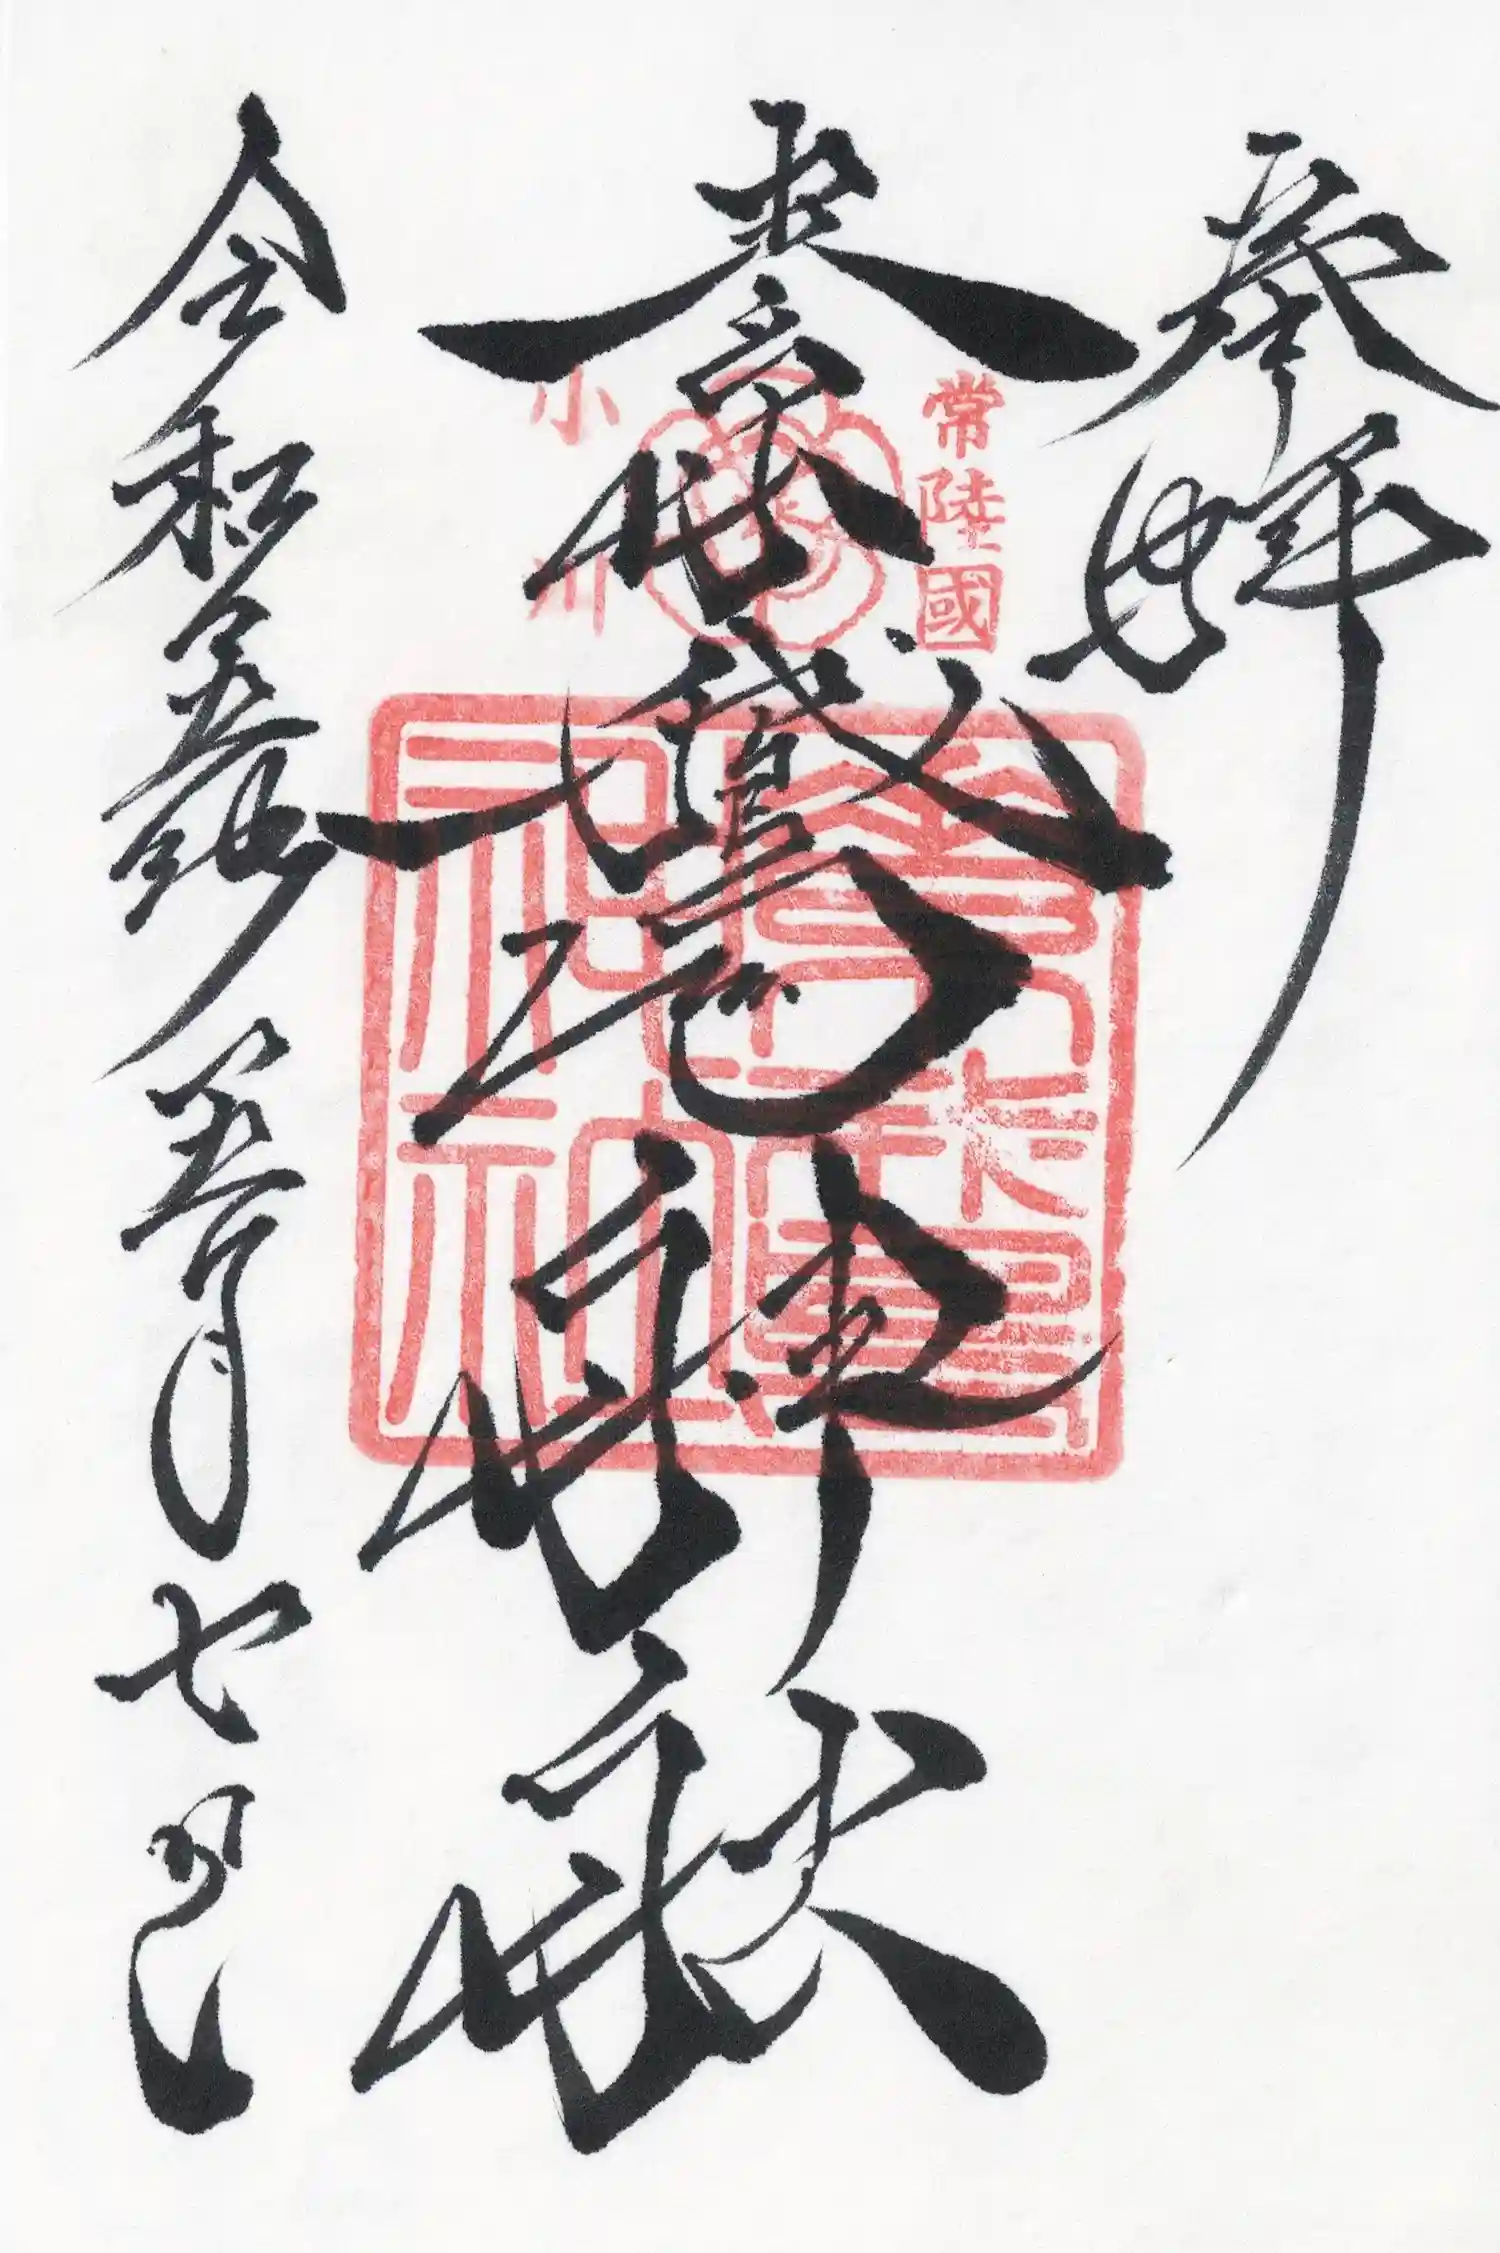 奉拝
常陸國
素鵞神社
小川
素鵞神社
令和五年五月七日